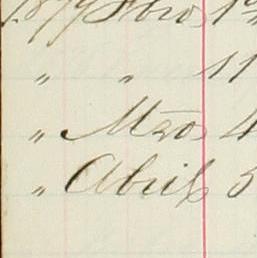 1879 Fbro 1º
" " 11
" Mzo 4
" Abril 5